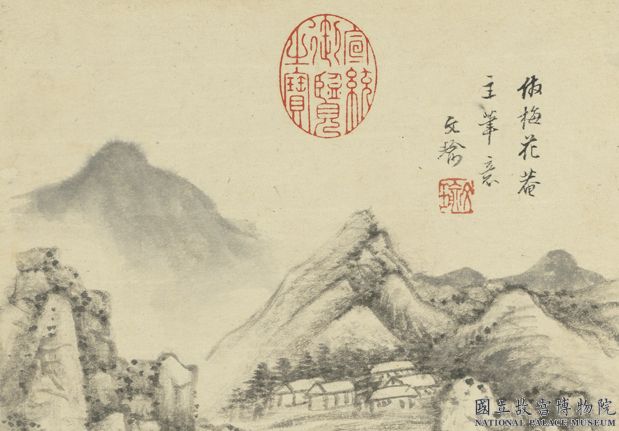 倣梅花菴
主筆意
文瑜
宣統
御覽
之寶
國立故宮博物院
NATIONAL PALACE MUSEUM